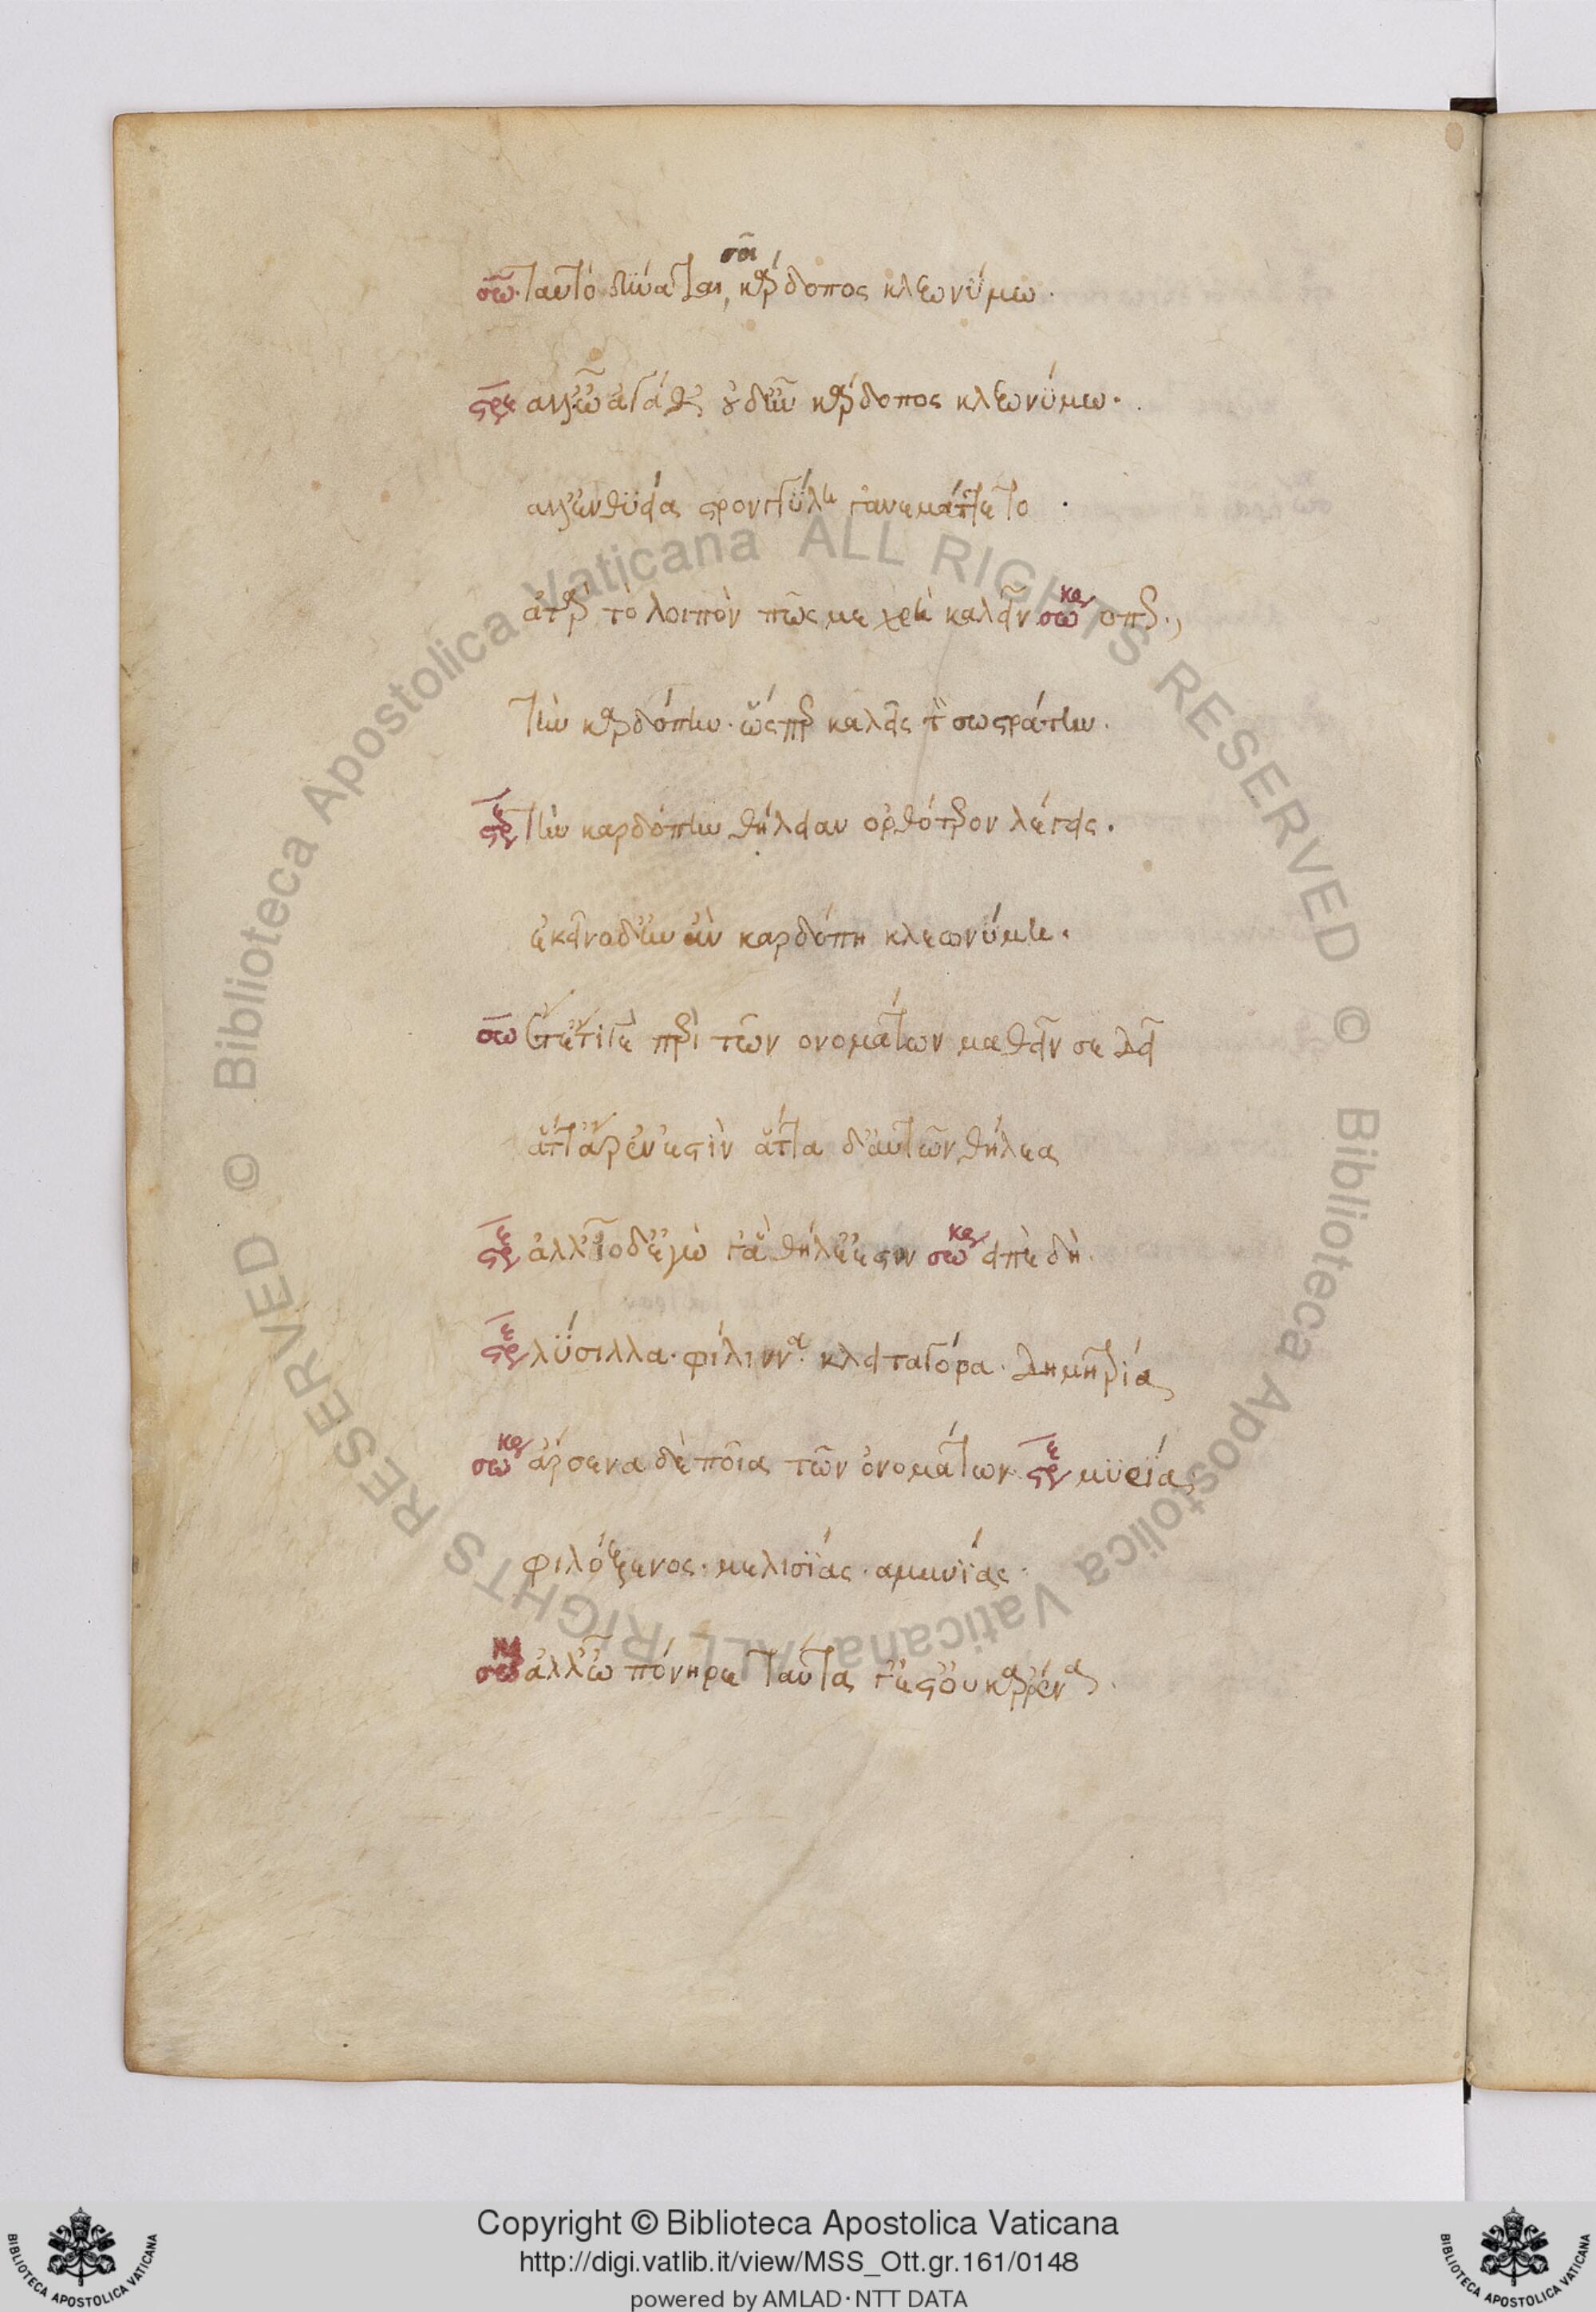 σοι
σω ταυτὸ δύναται, κάρδοπος κλεωνύμω.
στρε ἀλλ' ὦ ἀγάθ' οὐδ' ἦν κάρδοπος κλεωνύμω.
ἀλλ' ἐν θυεία στρογγύλη γ' ἀνεμάττετο.
ἀτὰρ τὸ λοιπὸν πῶς με χρὴ καλεῖν σωκρ ὅπερ.,
τὴν καρδόπην. ὥσπερ καλεῖς τὴν σωστράτην.
στρε τὴν καρδόπην θήλειαν ὀρθότερον λέγεις.
ἐκεῖνο δ' ἦν ἂν καρδόπη κλεωνύμη.
σω ἔτι γε περὶ τῶν ὀνομάτων μαθεῖν σε δεῖ
ἅττ' ἄρρεν' ἐστὶν ἅττα δ' αὐτῶν θήλεα
στρε ἀλλ' οἶδ' ἔγωγ' ἃ θήλε' ἐστιν σωκρ εἰπὲ δή.
στρε λύσιλλα. φίλιννα. κλειταγόρα. δημητρία
σωκρ ἄρσενα δὲ ποῖα τῶν ὀνομάτων. στρε μυρία
φιλόξενος. μελησίας. αμυνίας.
σωκρ ἀλλ' ὦ πόνηρε ταῦτα γ' ἔστ' οὐκ ἄρρενα.
Biblioteca Apostolica Vaticana ALL RIGHTS RESERVED ©
Biblioteca Apostolica Vaticana ALL RIGHTS RESERVED ©
Copyright © Biblioteca Apostolica Vaticana
http://digi.vatlib.it/view/MSS_Ott.gr.161/0148
powered by AMLAD·NTT DATA
BIBLIOTECA APOSTOLICA VATICANA
BIBLIOTECA APOSTOLICA VATICANA